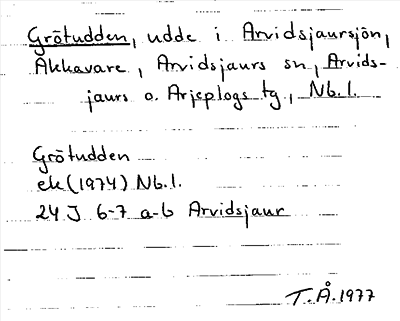 Grötudden, udde i Arvidsjaursjön,
Akkavare, Arvidsjaurs sn, Arvids-
jaurs o. Arjeplogs tg, Nb.l.
Grötudden
ek (1974) Nb.l.
24 J 6-7 a-b Arvidsjaur
T.Å.1977